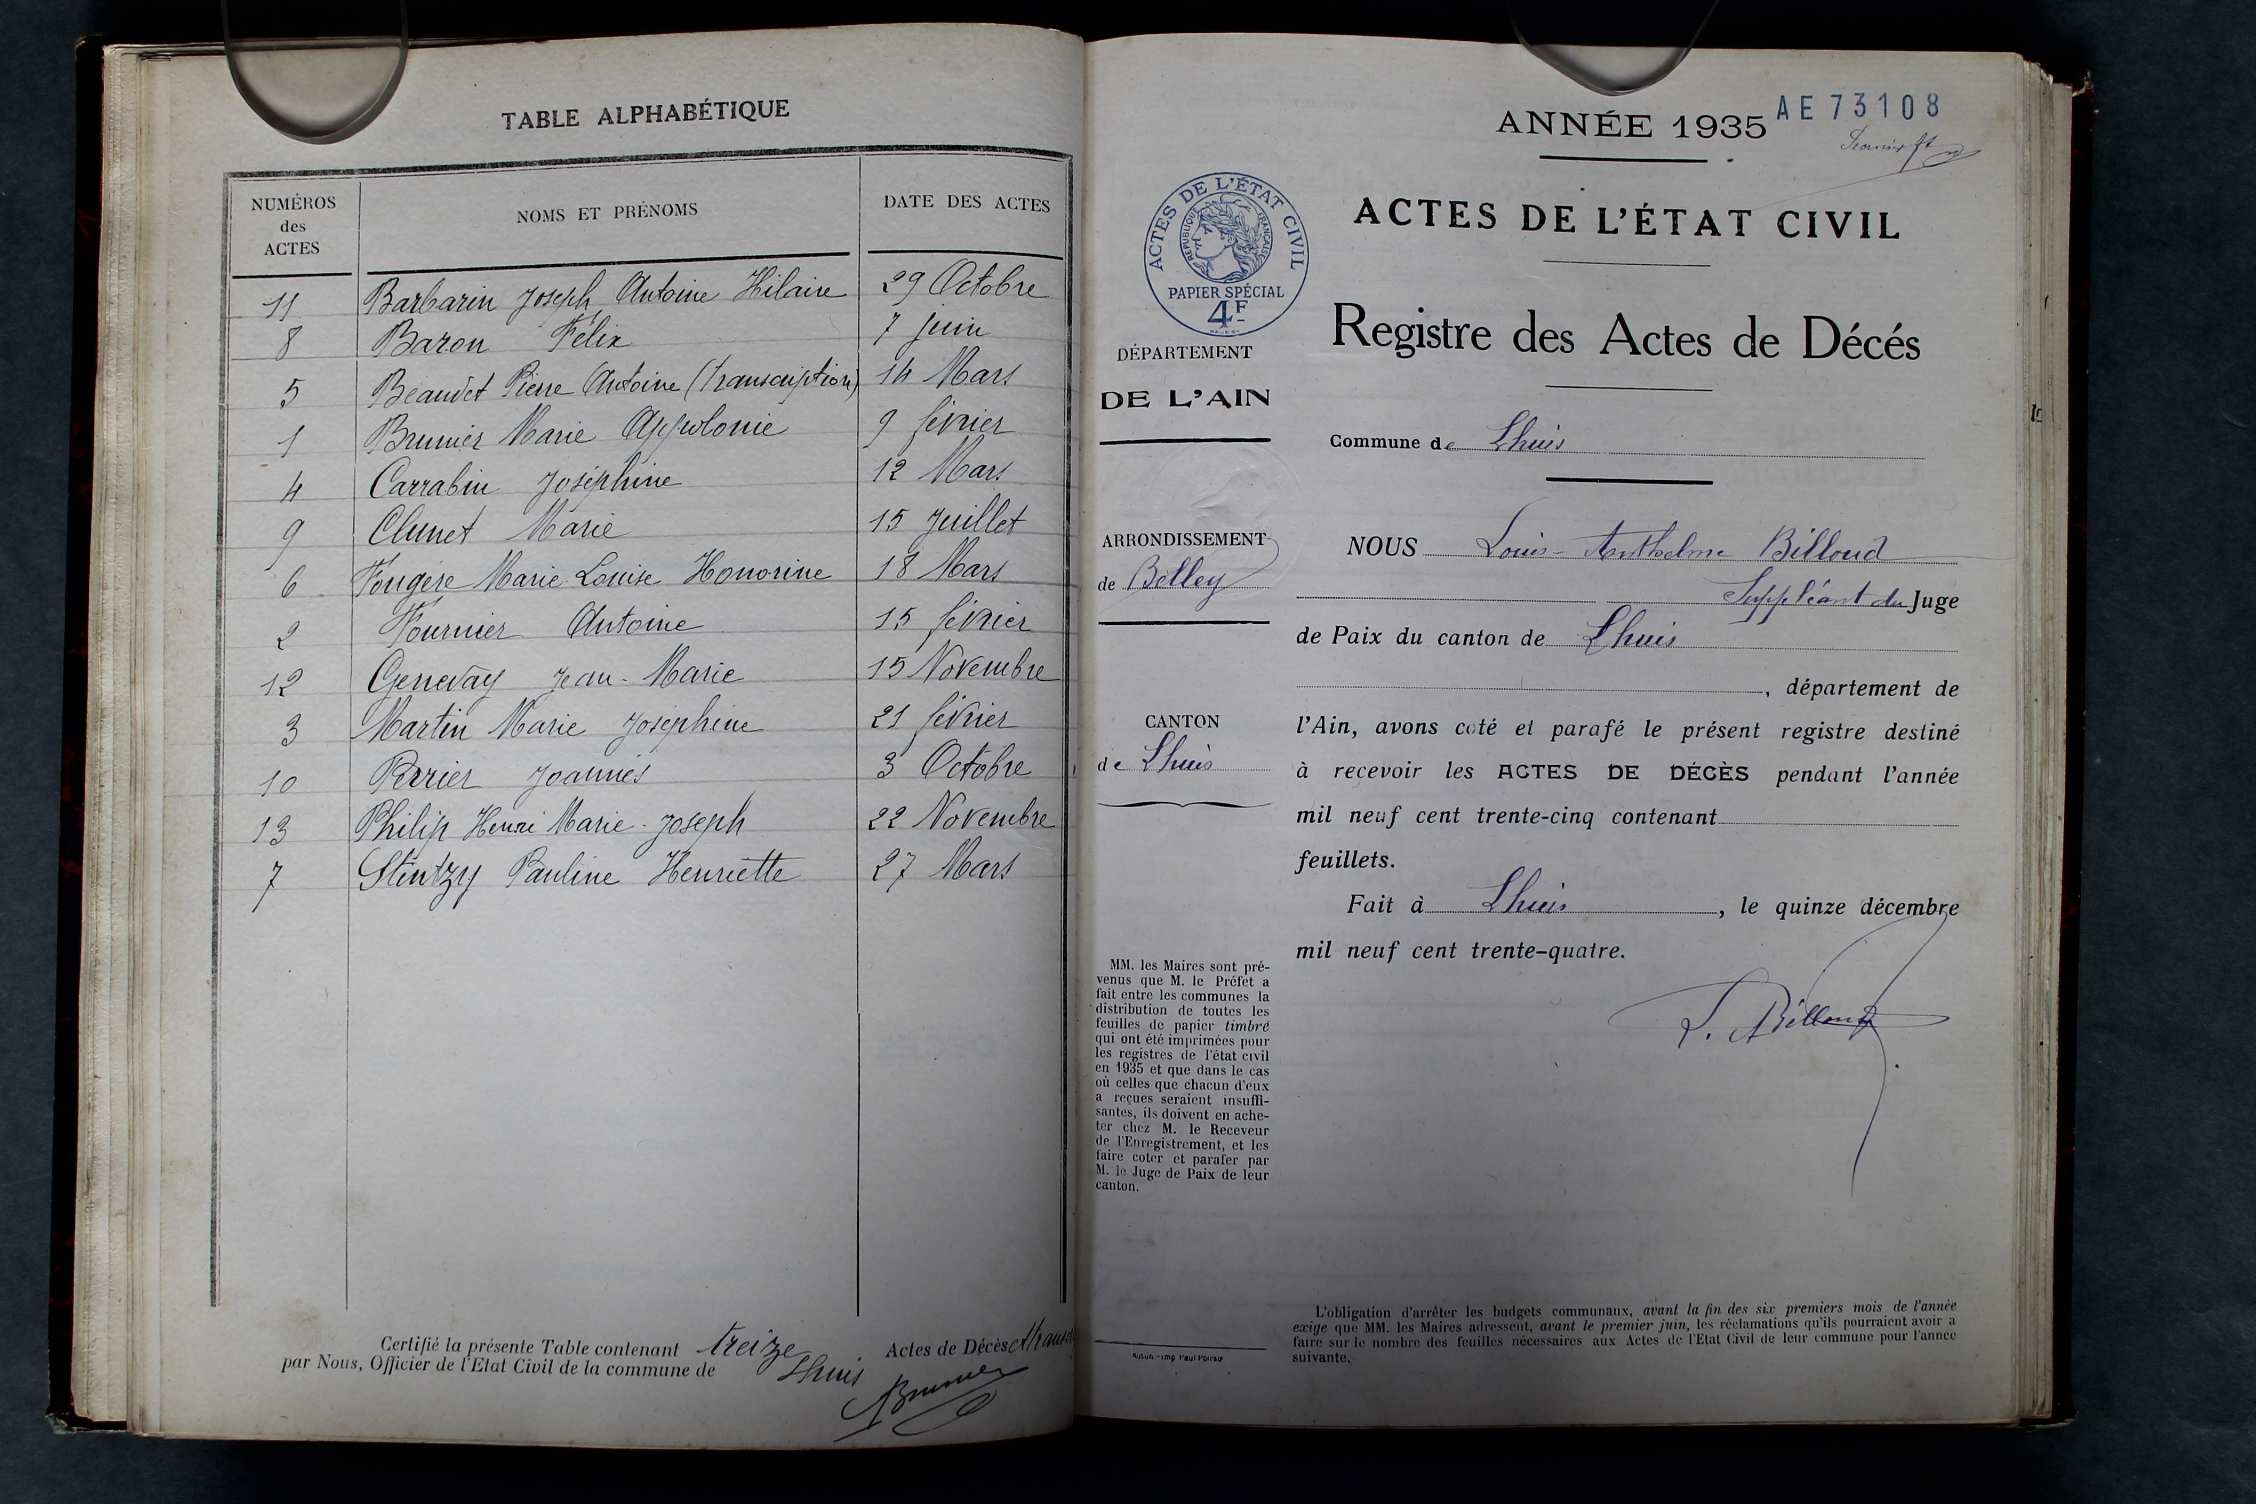 TABLE ALPHABÉTIQUE
NUMÉROS des ACTES
NOMS ET PRÉNOMS
DATE DES ACTES
11 Barbarin Joseph Antoine Hilaire 29 Octobre
8 Baron Félix 7 Juin
5 Beaudet Pierre Antoine (transcription) 14 Mars
1 Brunier Marie Appolonie 9 février
4 Carrabin Joséphine 12 Mars
9 Clunet Marie 15 Juillet
6 Fougère Marie Louise Honorine 18 Mars
2 Fournier Antoine 15 février
12 Genevay Jean-Marie 15 Novembre
3 Martin Marie Joséphine 21 février
10 Perrier Joannès 3 Octobre
13 Philip Henri Marie-Joseph 22 Novembre
7 Stintzy Pauline Henriette 27 Mars
Certifié la présente Table contenant treize Actes de Décès
par Nous, Officier de l'Etat Civil de la commune de Lhuis
Brunier
ANNÉE 1935
AE73108
ACTES DE L'ÉTAT CIVIL
RÉPUBLIQUE FRANÇAISE
PAPIER SPÉCIAL
4F
ACTES DE L'ÉTAT CIVIL
Registre des Actes de Décés
DÉPARTEMENT
DE L'AIN
Commune de Lhuis
ARRONDISSEMENT
de Belley
CANTON
de Lhuis
NOUS Louis-Anthelme Billoud
Suppléant du Juge
de Paix du canton de Lhuis
, département de
l'Ain, avons coté et parafé le présent registre destiné
à recevoir les ACTES DE DÉCÈS pendant l'année
mil neuf cent trente-cinq contenant
feuillets.
Fait à Lhuis, le quinze décembre
mil neuf cent trente-quatre.
L. Billoud
MM. les Maires sont pré-
venus que M. le Préfet a
fait entre les communes la
distribution de toutes les
feuilles de papier timbré
qui ont été imprimées pour
les registres de l'état civil
en 1935 et que dans le cas
où celles que chacun d'eux
a reçues seraient insuffi-
santes, ils doivent en ache-
ter chez M. le Receveur
de l'Enregistrement, et les
faire coter et parafer par
M. le Juge de Paix de leur
canton.
L'obligation d'arrêter les budgets communaux, avant la fin des six premiers mois de l'année
exige que MM. les Maires adressent, avant le premier juin, les réclamations qu'ils pourraient avoir à
faire sur le nombre des feuilles nécessaires aux Actes de l'Etat Civil de leur commune pour l'année
suivante.